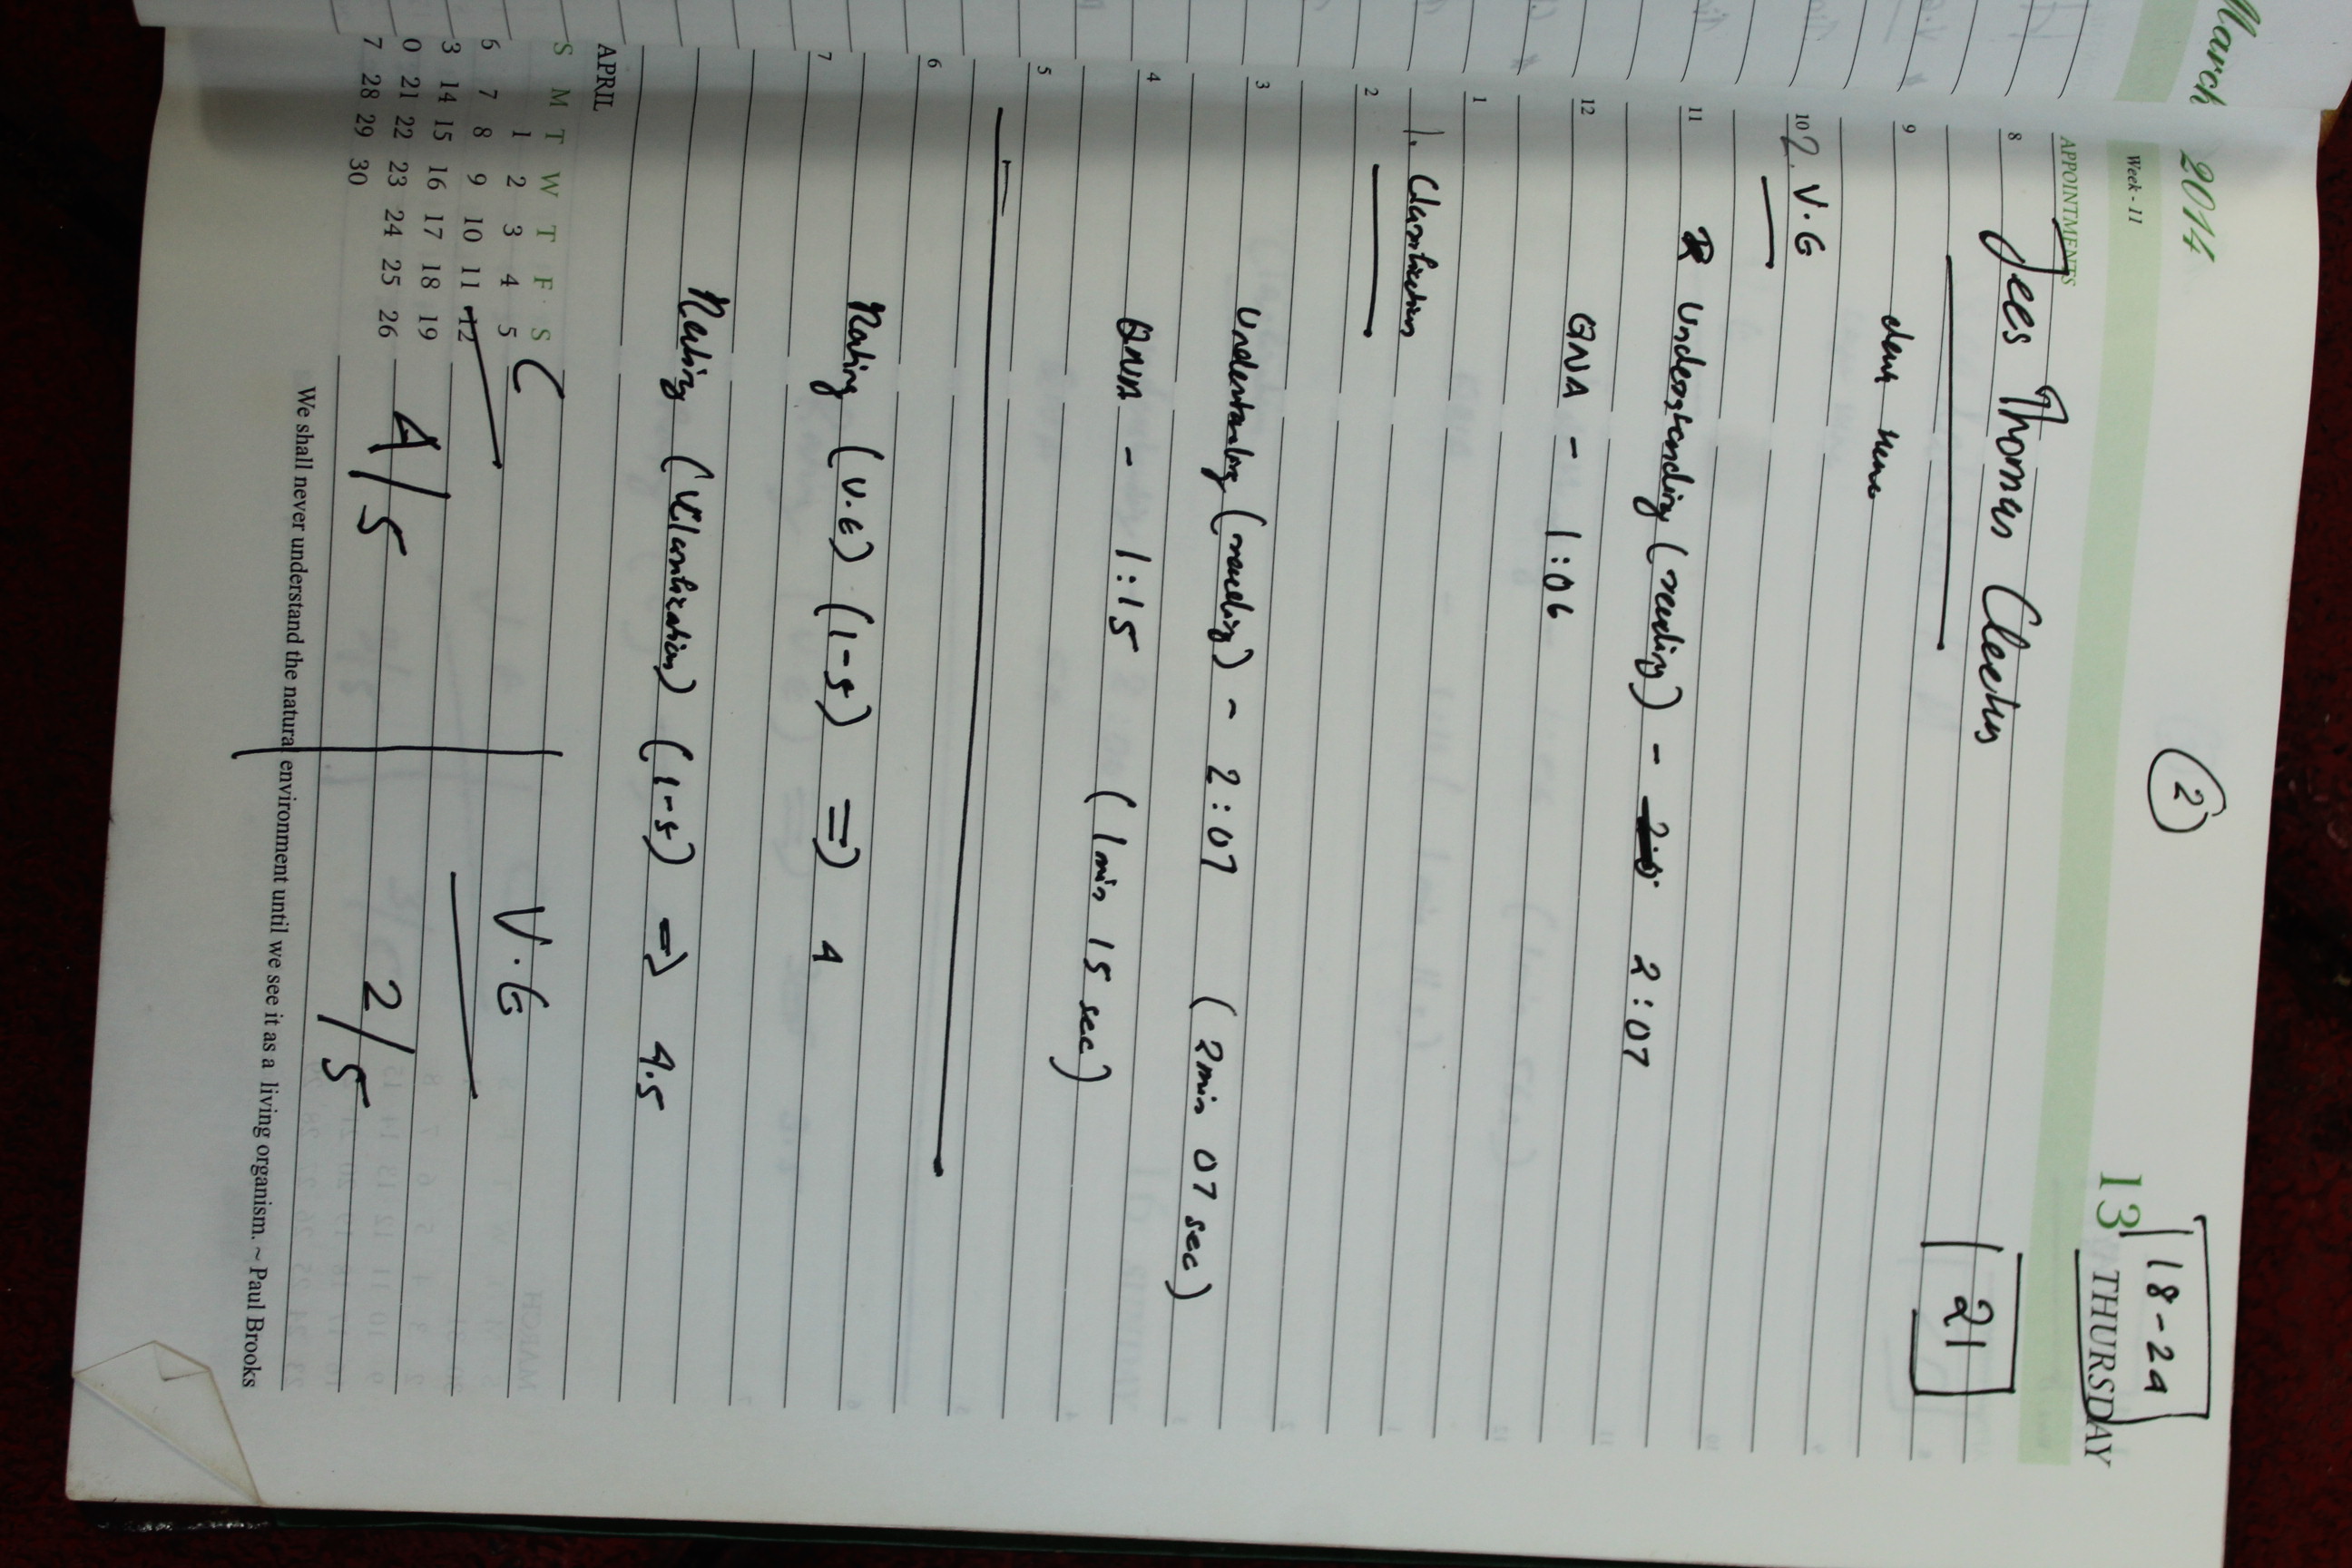 March
2014
2
18-24
Week - 11
13 THURSDAY
APPOINTMENTS
8 Jees Thomas Cleetus
21
9
10 2. V.G
11 Understanding (reading) - 2:07
12 QNA - 1:06
1
1. Classification
2
3 Understanding (reading) - 2:07 (2min 07 sec)
4 QNA - 1:15 (1min 15 sec)
5
6
Rating (V.G) (1-5) => 4
7
Rating (Classification) (1-5) => 4.5
APRIL
S M T W T F S
1 2 3 4 5
6 7 8 9 10 11 12
3 14 15 16 17 18 19
0 21 22 23 24 25 26
7 28 29 30
C
V.G
4/5
2/5
We shall never understand the natural environment until we see it as a living organism. ~ Paul Brooks